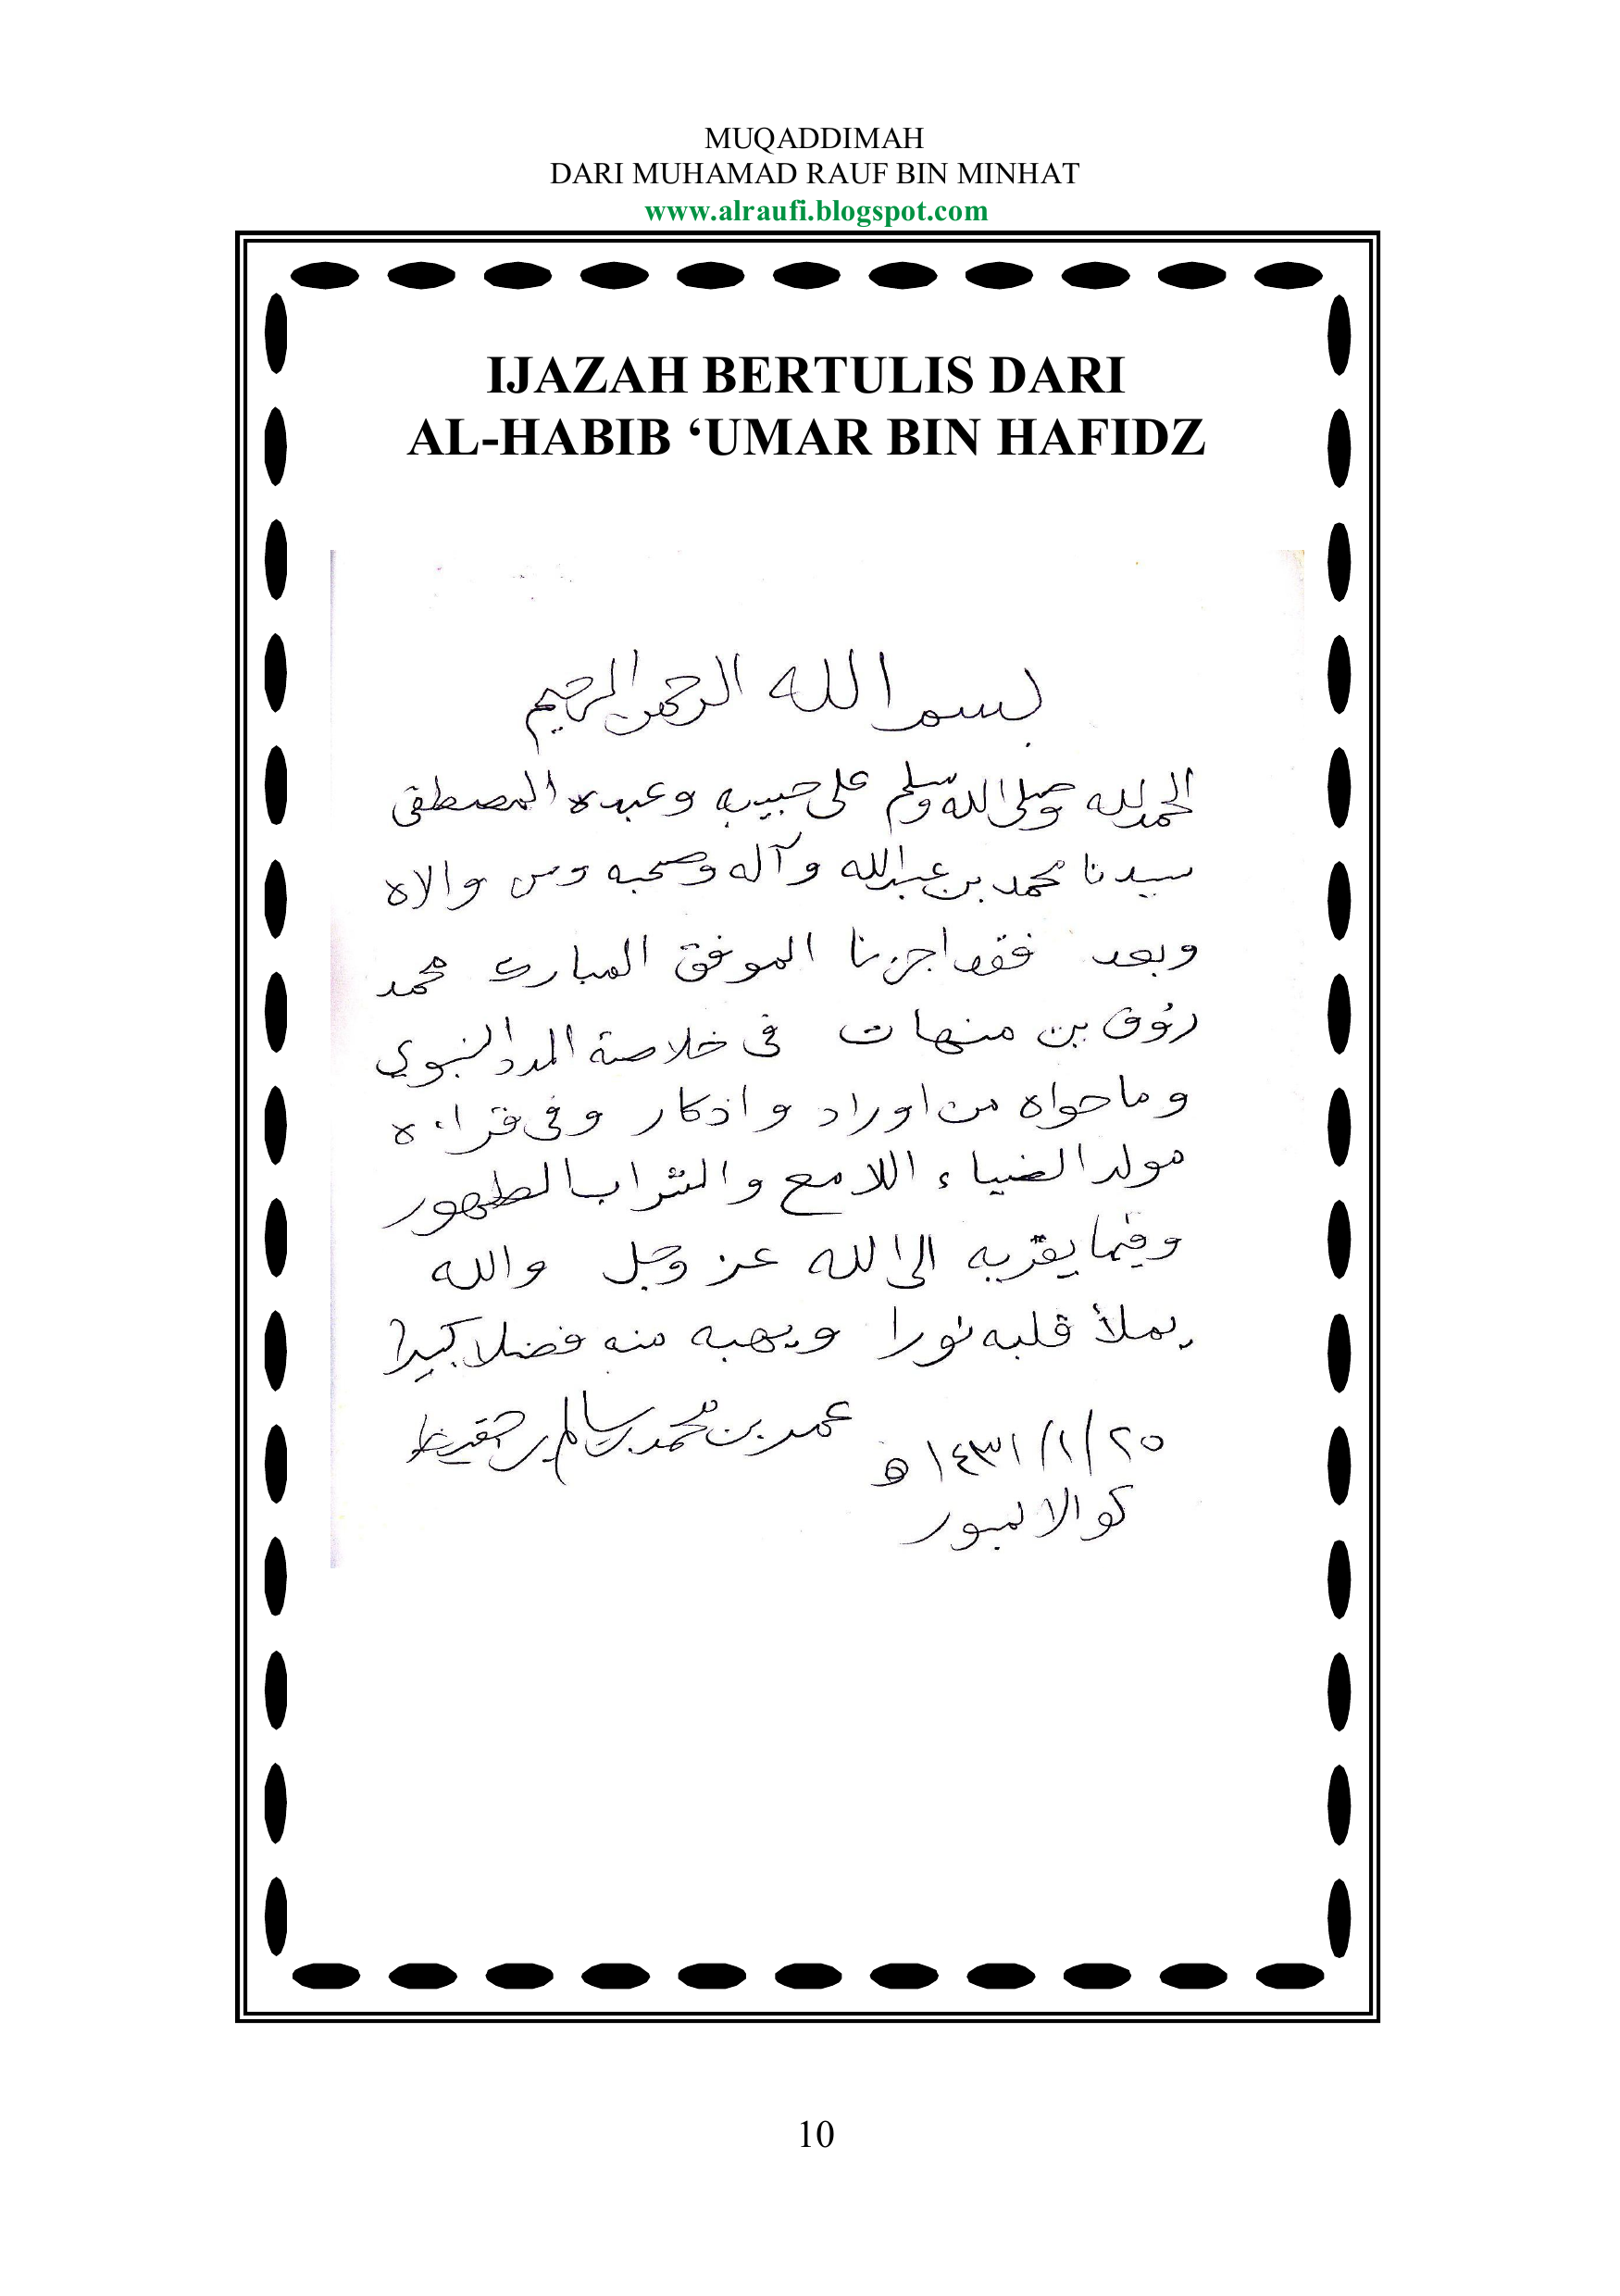 MUQADDIMAH
DARI MUHAMAD RAUF BIN MINHAT
www.alraufi.blogspot.com
IJAZAH BERTULIS DARI
AL-HABIB ‘UMAR BIN HAFIDZ
بسم الله الرحمن الرحيم
الحمد لله وصلى الله وسلم على حبيبه وعبده المصطفى
سيدنا محمد بن عبدالله وآله وصحبه ومن والاه
وبعد فقد اجزنا الموفق المبارك محمد
رؤوف بن منهات في خلاصة المدد النبوي
وما حواه من اوراد واذكار وفي قراءة
مولد الضياء اللامع والشراب الطهور
وفيما يقربه الى الله عز وجل والله
يملأ قلبه نورا ويهبه منه فضلا كبيرا
٢٥/١/١٤٣١هـ عمر بن محمد بن سالم بن حفيظ
كوالا لمبور
10